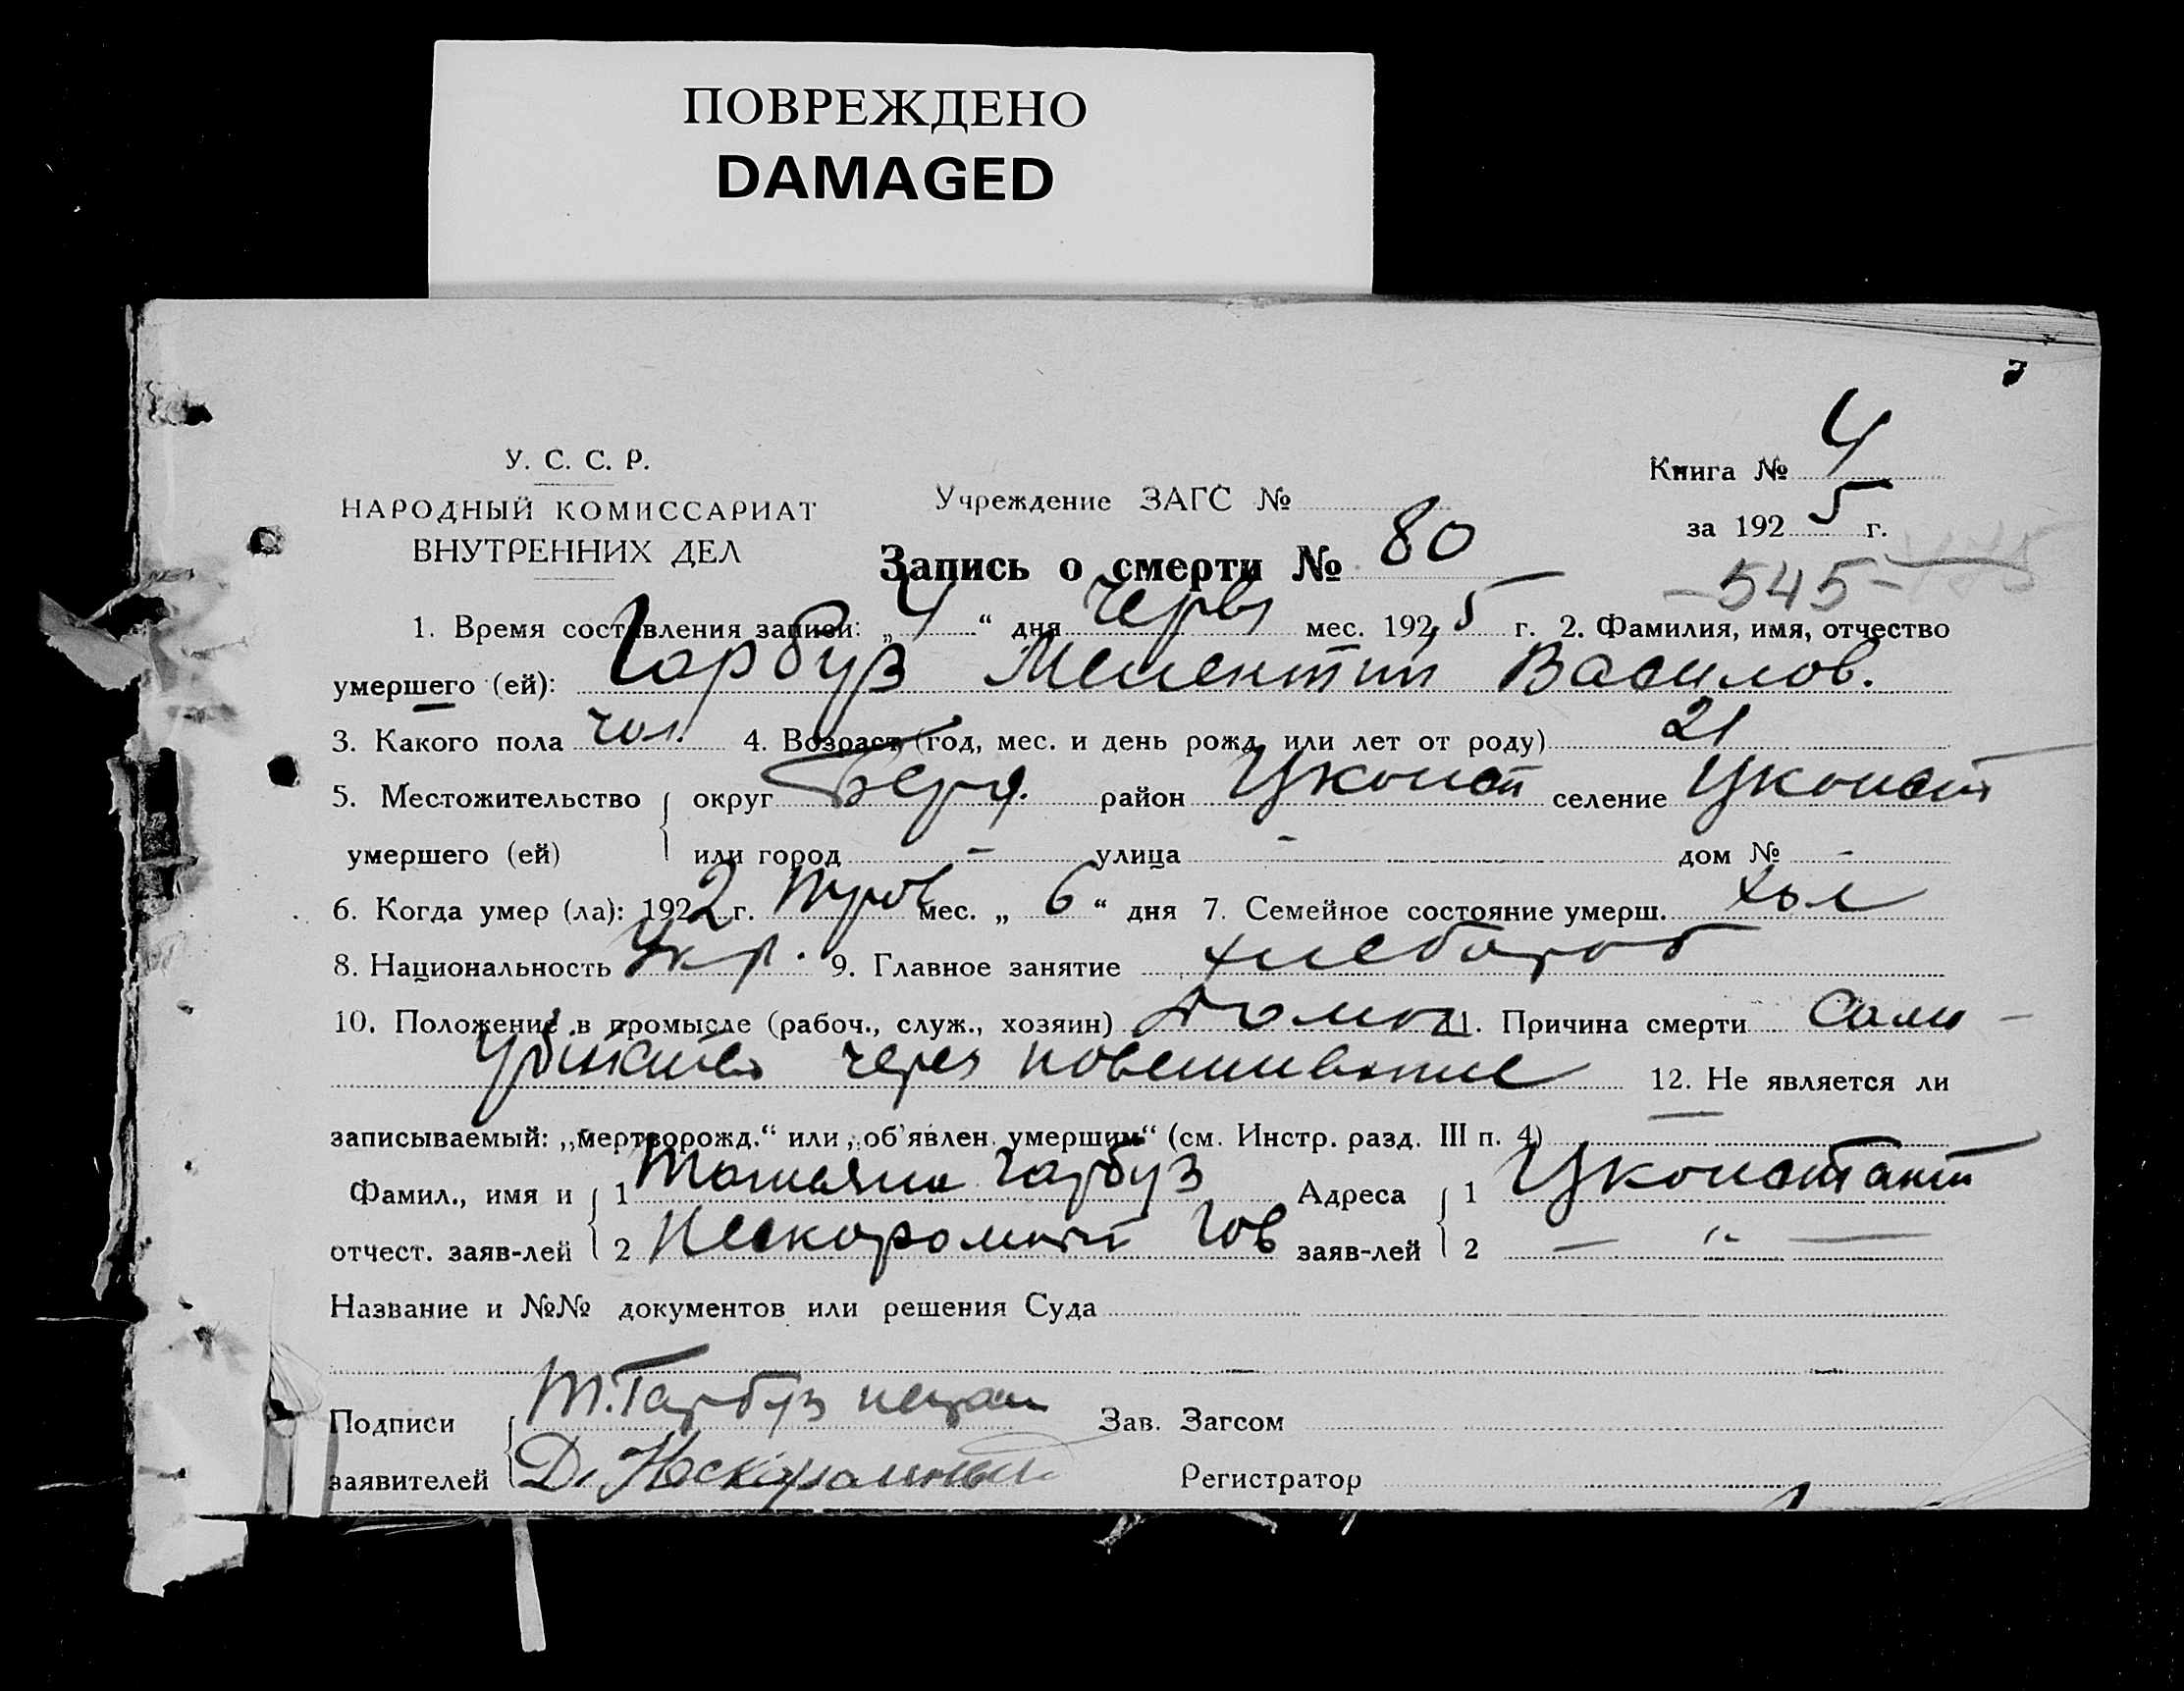 ПОВРЕЖДЕНО
DAMAGED
У. С. С. Р.
НАРОДНЫЙ КОМИССАРИАТ
ВНУТРЕННИХ ДЕЛ
Учреждение ЗАГС №
Книга № 4
за 1925 г.
Запись о смерти № 80
-545-
1. Время составления записи: „4“ дня Червня мес. 1925 г. 2. Фамилия, имя, отчество
умершего (ей): Гарбуз Мелентий Василов.
3. Какого пола чол. 4. Возраст (год, мес. и день рожд. или лет от роду) 21
5. Местожительство округ Берд. район Цконст селение Цконст
умершего (ей) или город - улица - дом № -
6. Когда умер (ла): 1922 г. Трав мес. „6“ дня 7. Семейное состояние умерш. хол
8. Национальность Укр. 9. Главное занятие хлебороб
10. Положение в промысле (рабоч., служ., хозяин) 11. Причина смерти Само-
убийство через повешивание 12. Не является ли
записываемый: „мертворожд.“ или „об'явлен умершим“ (см. Инстр. разд. III п. 4) —
Фамил., имя и 1 Татьяна Гарбуз Адреса 1 Цконстант
отчест. заяв-лей 2 Нескоромный заяв-лей 2 — „ —
Название и №№ документов или решения Суда
Подписи Т. Гарбуз неграм Зав. Загсом
заявителей Д. Нескоромный Регистратор